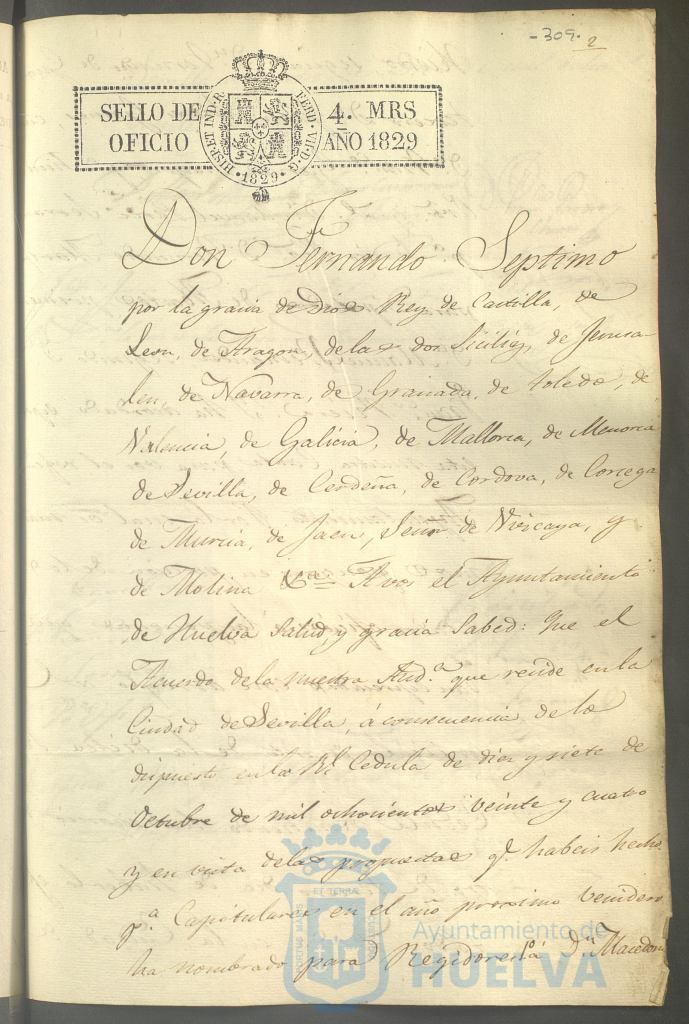 - 309. 2
SELLO DE OFICIO
HISP. ET IND. R. FERD. VII. D. G. 1829
4. MRS AÑO 1829
Don Fernando Septimo
por la gracia de Dios Rey de Castilla, de
Leon, de Aragon, de las dos Sicilias, de Jerusa-
len, de Navarra, de Granada, de Toledo, de
Valencia, de Galicia, de Mallorca, de Menorca
de Sevilla, de Cerdeña, de Cordova, de Corcega
de Murcia, de Jaen, Señor de Vizcaya, y
de Molina &.ª = A vos el Ayuntamiento
de Huelva Salud, y gracia Sabed: Que el
Acuerdo de la nuestra Aud.ª que reside en la
Ciudad de Sevilla, á consecuencia de lo
dispuesto en la Rl. Cedula de diez y siete de
Octubre de mil ochocientos veinte y cuatro
y en vista de las propuestas q.e habeis hecho
p.ª Capitulares en el año proximo venidero
ha nombrado para Regidores 1º á D.n Macedonio
Ayuntamiento de
HUELVA